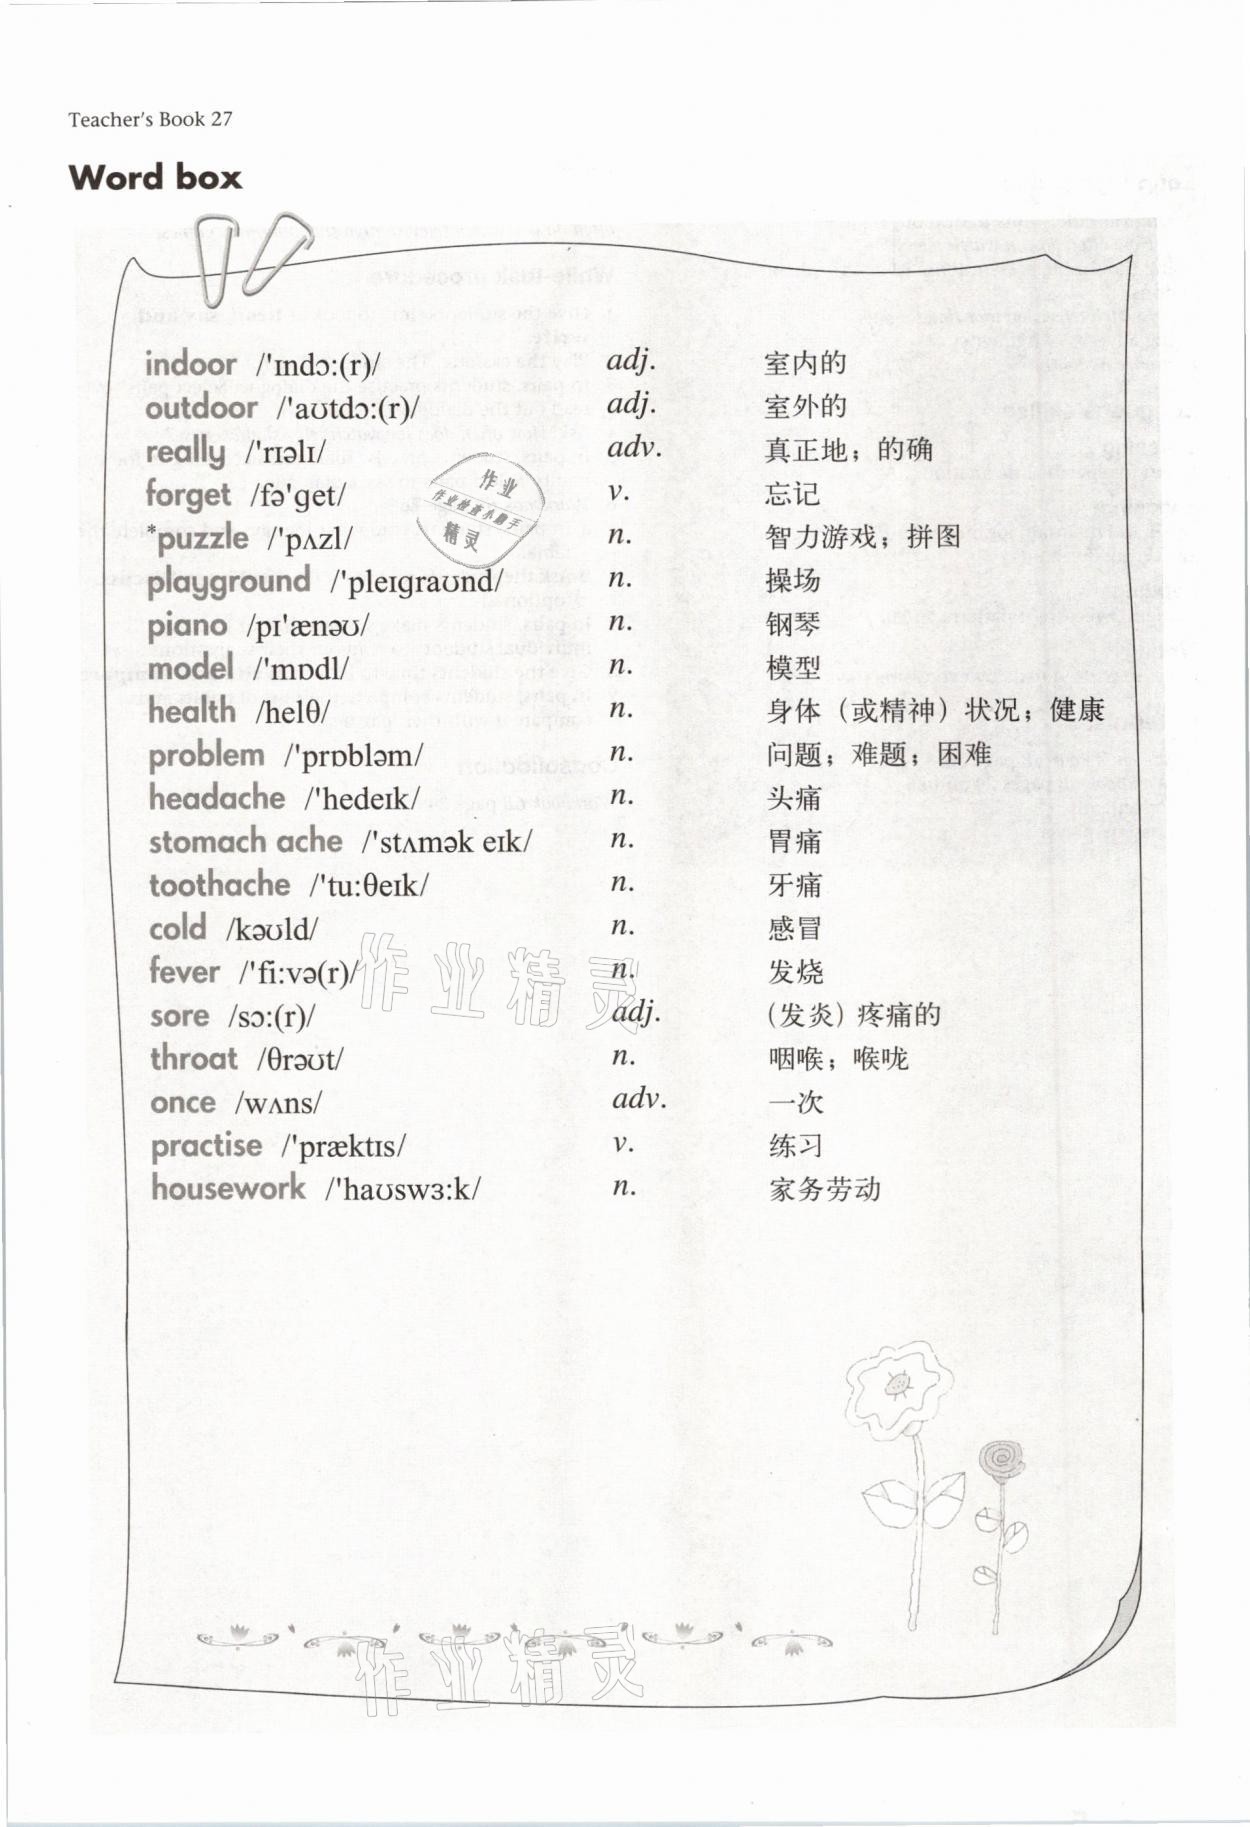 Teacher's Book 27
Word box
indoor /'ɪndɔ:(r)/ adj. 室内的
outdoor /'aʊtdɔ:(r)/ adj. 室外的
really /'rɪəlɪ/ adv. 真正地；的确
forget /fə'get/ v. 忘记
*puzzle /'pʌzl/ n. 智力游戏；拼图
playground /'pleɪgraʊnd/ n. 操场
piano /pɪ'ænəʊ/ n. 钢琴
model /'mɒdl/ n. 模型
health /helθ/ n. 身体（或精神）状况；健康
problem /'prɒbləm/ n. 问题；难题；困难
headache /'hedeɪk/ n. 头痛
stomach ache /'stʌmək eɪk/ n. 胃痛
toothache /'tu:θeɪk/ n. 牙痛
cold /kəʊld/ n. 感冒
fever /'fi:və(r)/ n. 发烧
sore /sɔ:(r)/ adj. （发炎）疼痛的
throat /θrəʊt/ n. 咽喉；喉咙
once /wʌns/ adv. 一次
practise /'præktɪs/ v. 练习
housework /'haʊswɜ:k/ n. 家务劳动
作业
作业检查小助手
精灵
作业精灵
作业精灵